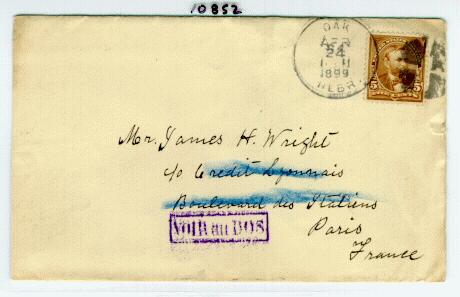 10852
OAK
APR
24
1899
NEBR.
Mr. James H. Wright
c/o Credit Lyonnais
Boulevard des Italiens
VOIR au DOS
Paris
France